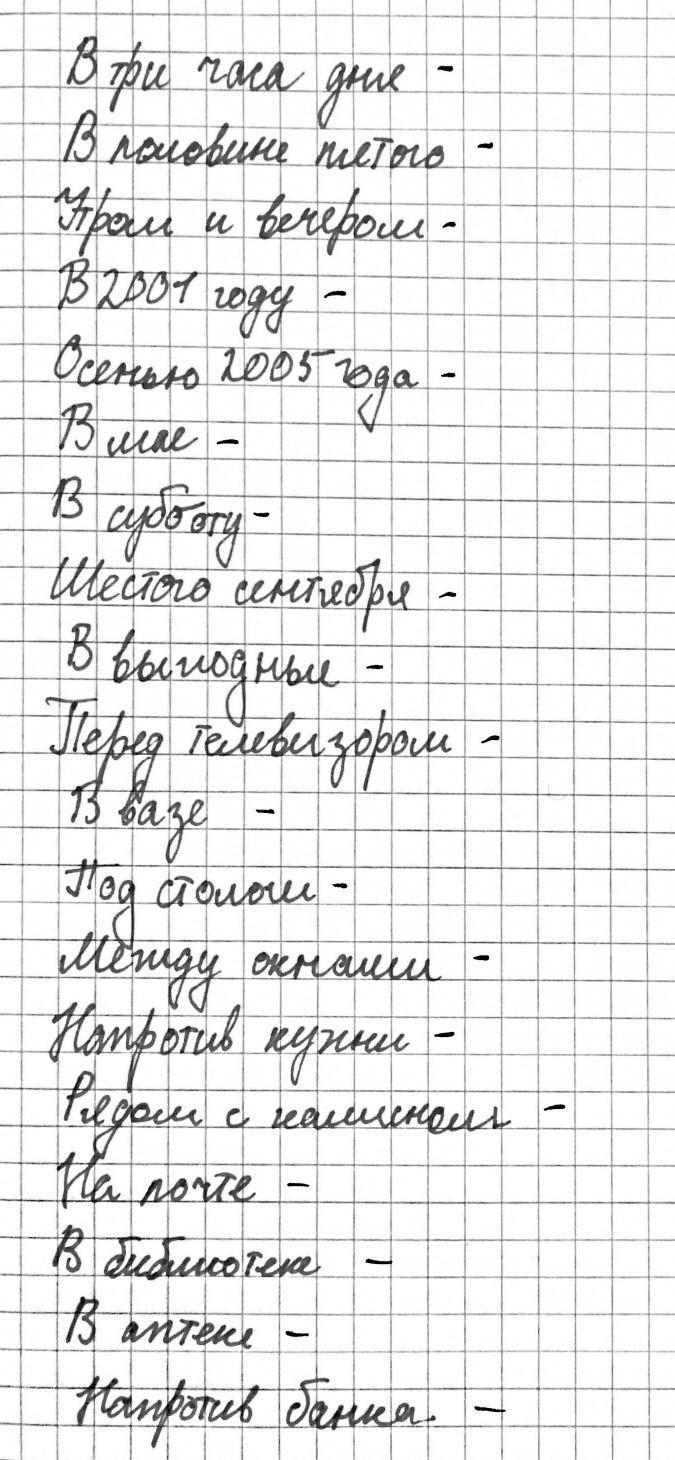 В три часа дня -
В половине пятого -
Утром и вечером -
В 2001 году -
Осенью 2005 года -
В мае -
В субботу -
Шестого сентября -
В выходные -
Перед телевизором -
В вазе -
Под столом -
Между окнами -
Напротив кухни -
Рядом с камином -
На почте -
В библиотеке -
В аптеке -
Напротив банка. -